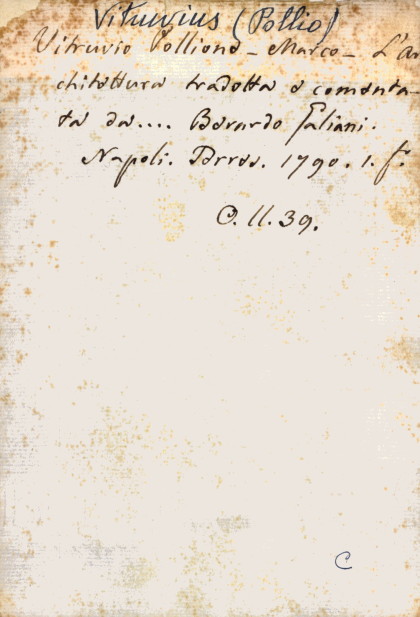 Vitruvius (Pollio)
Vitruvio Pollione - Marco - L'ar
chitettura tradotta e comenta-
ta da.... Berardo Galiani.
Napoli. Terres. 1790. 1. f.
O. II. 39.
C